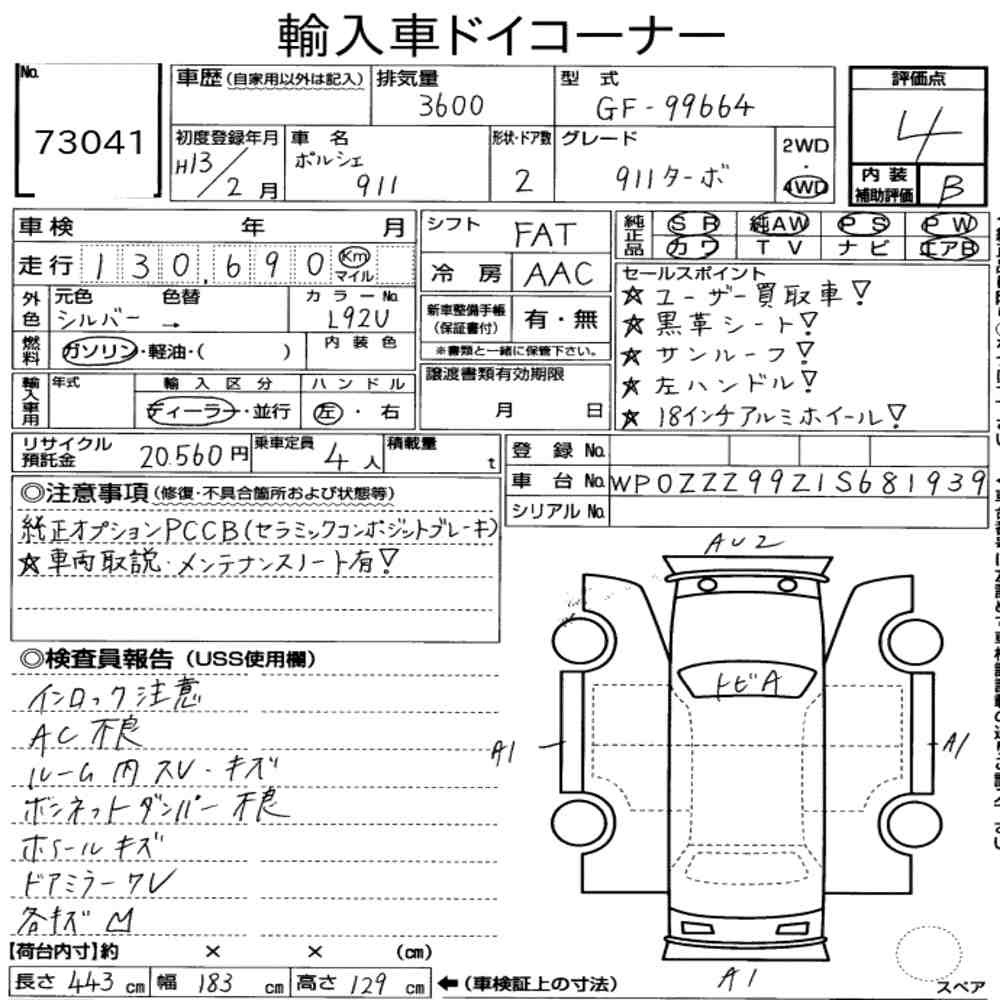 輸入車ドイコーナー
No.
73041
車歴(自家用以外は記入)
排気量
3600
型 式
GF-99664
評価点
4
初度登録年月
H13/2月
車 名
ポルシェ
911
形状・ドア数
2
グレード
911ターボ
2WD
・
4WD
内 装
補助評価
B
車検 年 月
走行 130,690 Km
マイル
シフト
FAT
冷 房
AAC
純正品
SR 純AW PS PW
カワ TV ナビ エアB
外色
元色 色替
シルバー →
カラーNo.
L92U
新車整備手帳
(保証書付)
有・無
※書類と一緒に保管下さい。
セールスポイント
☆ユーザー買取車!
☆黒革シート!
☆サンルーフ!
☆左ハンドル!
☆18インチアルミホイール!
燃料
ガソリン・軽油・( )
内 装 色
輸入車用
年式
輸 入 区 分
ディーラー・並行
ハ ン ド ル
左・右
譲渡書類有効期限
月 日
リサイクル
預託金
20.560円
乗車定員
4人
積載量
t
登 録 No.
車 台 No.
WP0ZZZ99Z1S681939
シリアル No.
◎注意事項(修復・不具合箇所および状態等)
純正オプションPCCB(セラミックコンポジットブレーキ)
☆車両取説・メンテナンスノート有!
◎検査員報告(USS使用欄)
インロック注意
AC不良
ルーム内スレ・キズ
ボンネットダンパー不良
ホイールキズ
ドアミラーワレ
各キズ凹
AU2
トビA
A1
A1
A1
スペア
【荷台内寸】約 × × (cm)
長さ 443 cm 幅 183 cm 高さ 129 cm ←(車検証上の寸法)